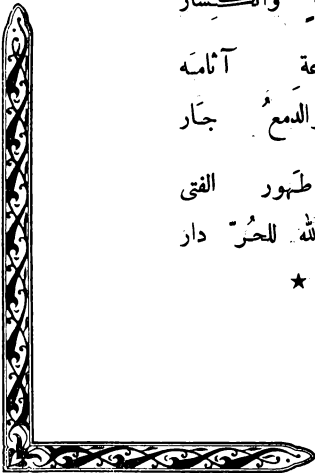 وانكسار
آثامَه
والدمعُ جَار
طَهور الفتى
الله للحُرّ دار
★